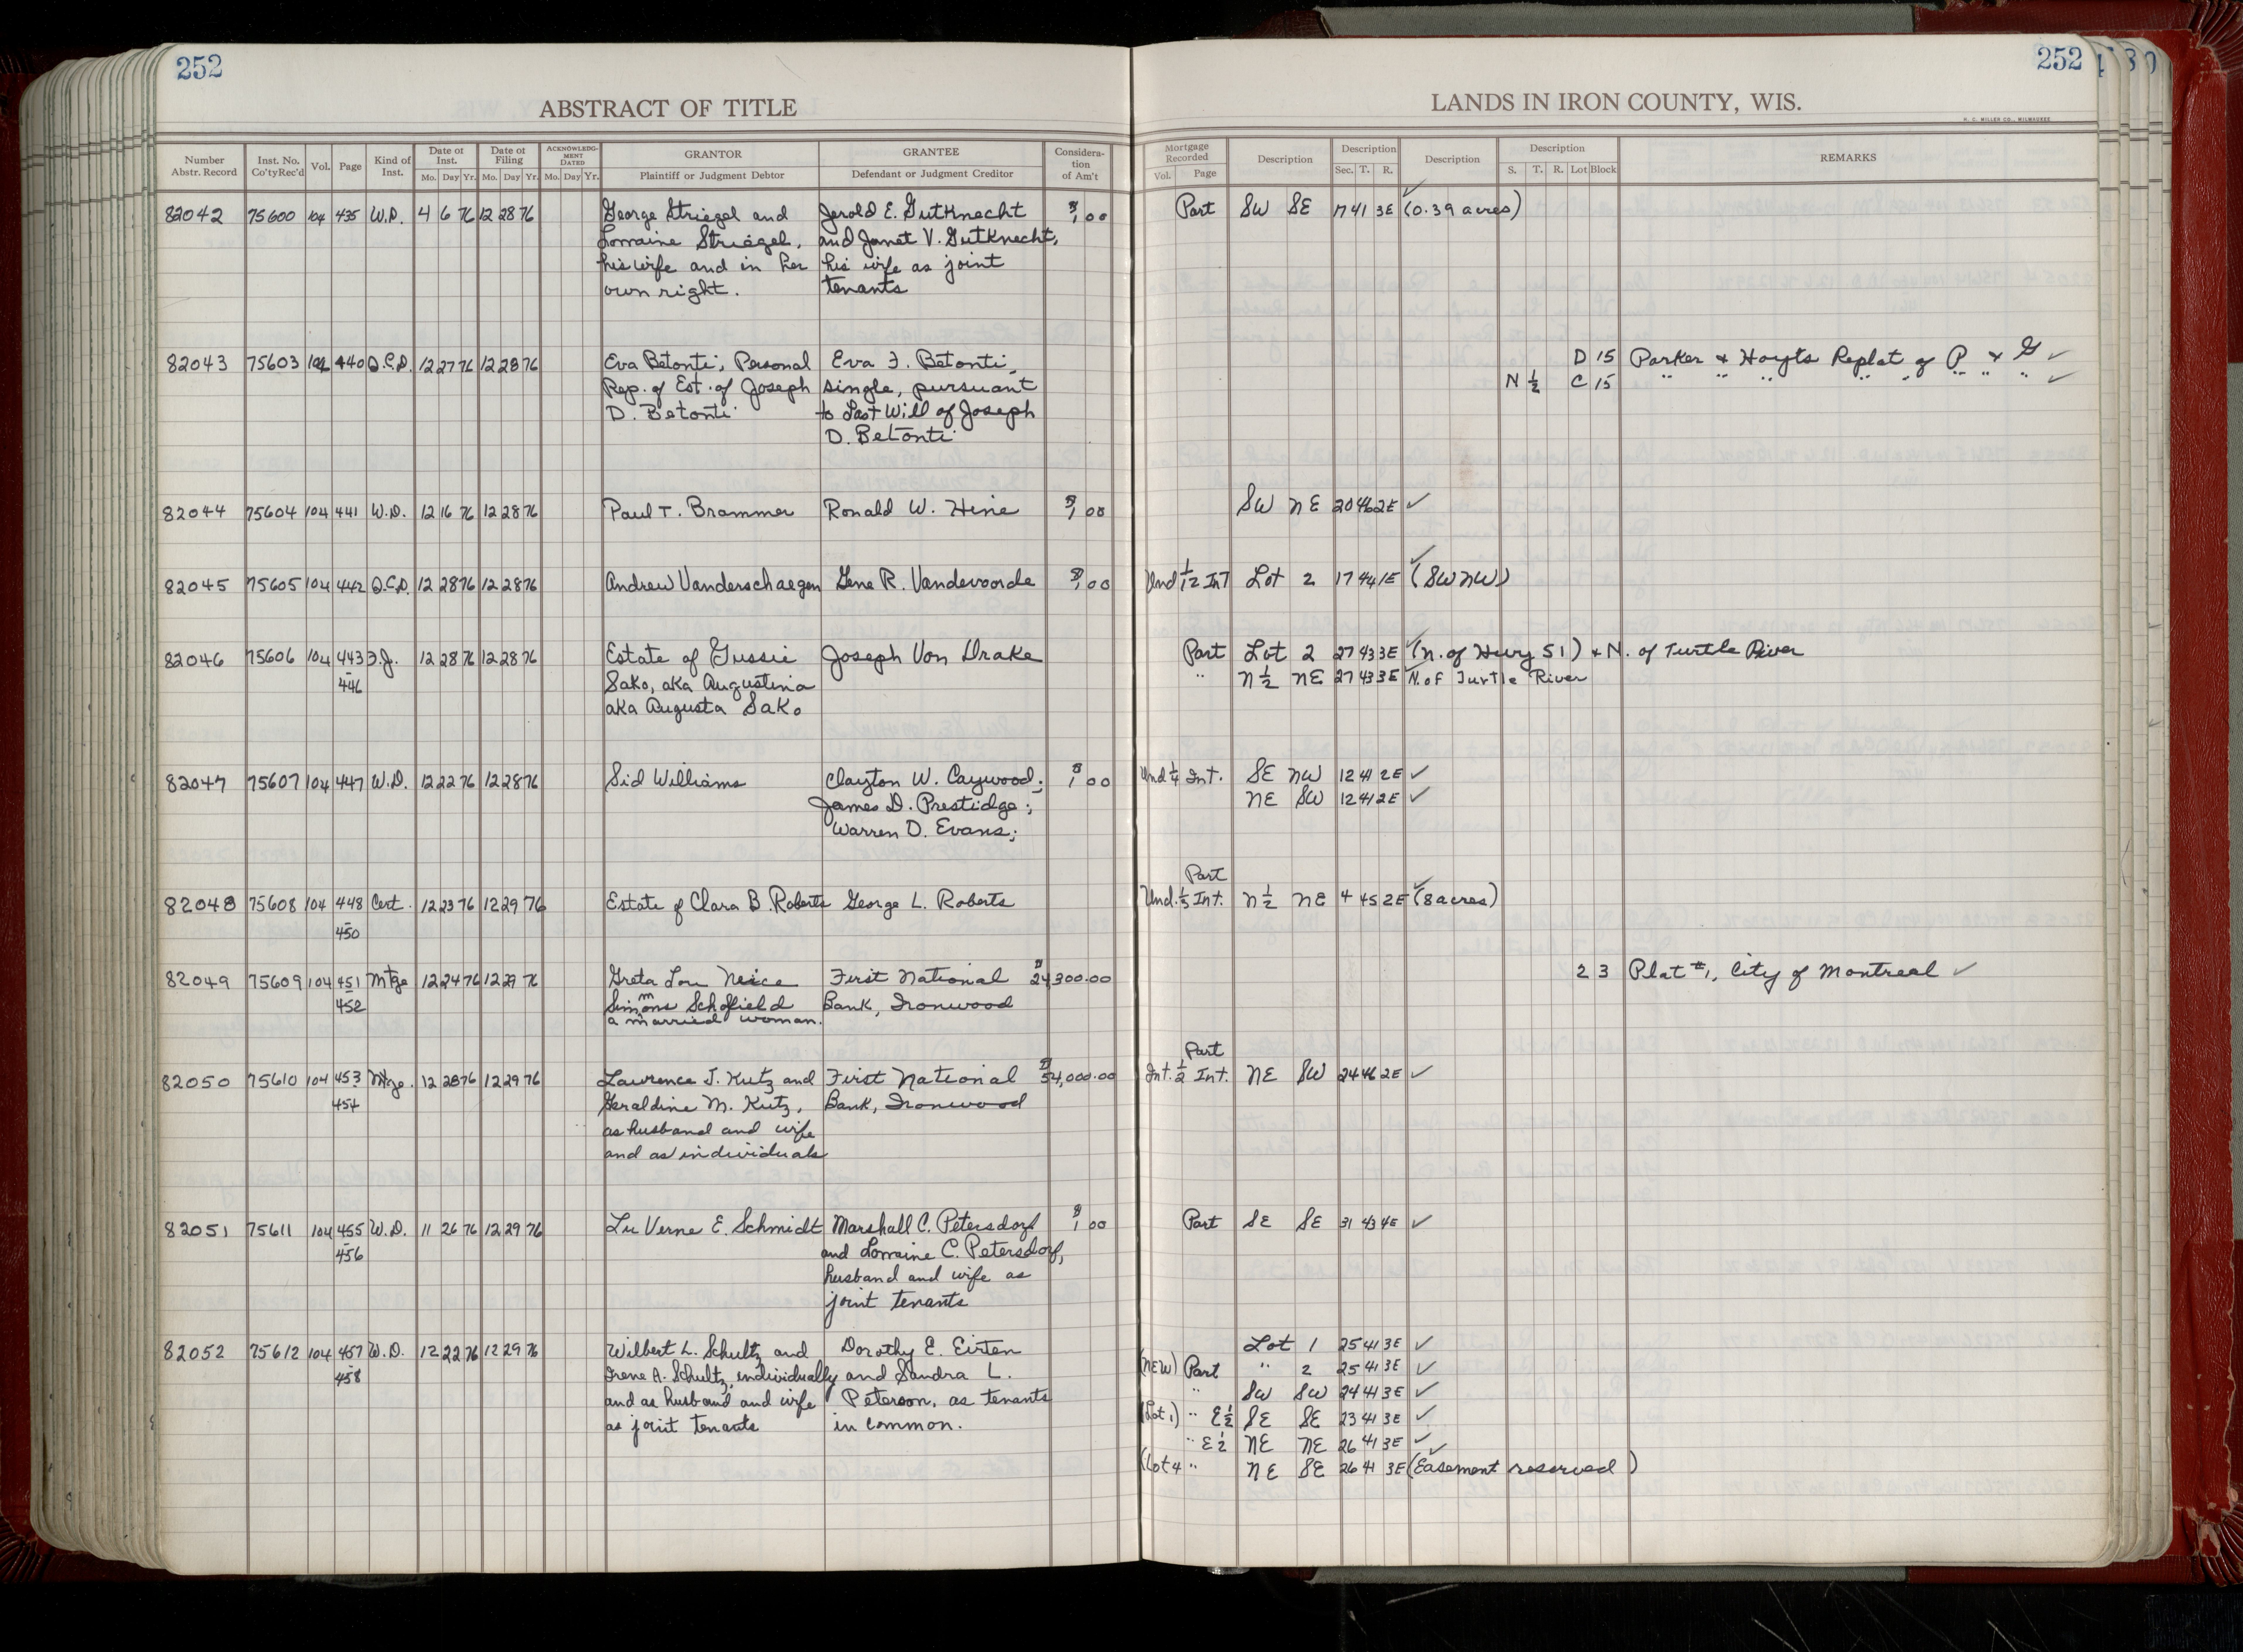 252
252
ABSTRACT OF TITLE
LANDS IN IRON COUNTY, WIS.
H. C. MILLER CO., MILWAUKEE
Number Abstr. Record | Inst. No. Co'ty Rec'd | Vol. | Page | Kind of Inst. | Date of Inst. Mo. Day Yr. | Date of Filing Mo. Day Yr. | ACKNOWLEDG-MENT DATED Mo. Day Yr. | GRANTOR Plaintiff or Judgment Debtor | GRANTEE Defendant or Judgment Creditor | Considera-tion of Am't | Mortgage Recorded Vol. Page | Description | Description Sec. T. R. | Description | Description S. T. R. Lot Block | REMARKS
82042 75600 104 435 W.D. 4 6 76 12 28 76 George Striegel and Jerold E. Gutknecht $1,00 Part SW SE 17 41 3E ✓(0.39 acres)
Lorraine Striegel, and Janet V. Gutknecht,
his wife and in her his wife as joint
own right. tenants
82043 75603 104 440 Q.C.D. 12 27 76 12 28 76 Eva Betonti, Personal Eva F. Betonti, D 15 Parker & Hoyts Replat of P & G ✓
Rep. of Est. of Joseph single, pursuant N 1/2 C 15 " " " " " " " " ✓
D. Betonti to Last Will of Joseph
D. Betonti
82044 75604 104 441 W.D. 12 16 76 12 28 76 Paul T. Brammer Ronald W. Hine $1,00 SW NE 20 46 2E ✓
82045 75605 104 442 Q.C.D. 12 28 76 12 28 76 Andrew Vanderschaegen Gene R. Vandevoorde $1,00 Und 1/12 Int Lot 2 17 44 1E ✓(SW NW)
82046 75606 104 443 F.J. 12 28 76 12 28 76 Estate of Gussie Joseph Von Drake Part Lot 2 27 43 3E ✓(N. of Hwy 51) & N. of Turtle River
- 446 Sako, aka Augustina " N 1/2 NE 27 43 3E ✓N. of Turtle River
aka Augusta Sako
82047 75607 104 447 W.D. 12 22 76 12 28 76 Sid Williams Clayton W. Caywood; $1,00 Und 1/4 Int. SE NW 12 41 2E ✓
James D. Prestidge; NE SW 12 41 2E ✓
Warren D. Evans;
Part
82048 75608 104 448 Cert. 12 23 76 12 29 76 Estate of Clara B. Roberts George L. Roberts Und. 1/3 Int. N 1/2 NE 4 45 2E ✓(8 acres)
- 450
82049 75609 104 451 Mtge 12 24 76 12 29 76 Greta Lou Neice First National $24,300.00 2 3 Plat #1, City of Montreal ✓
- 452 Simmons Schofield Bank, Ironwood
a married woman.
Part
82050 75610 104 453 Mtge. 12 28 76 12 29 76 Lawrence J. Kutz and First National $54,000.00 Int. 1/2 Int. NE SW 24 46 2E ✓
- 454 Geraldine M. Kutz, Bank, Ironwood
as husband and wife
and as individuals
82051 75611 104 455 W.D. 11 26 76 12 29 76 Lu Verne E. Schmidt Marshall C. Petersdorf $1,00 Part SE SE 31 43 4E ✓
- 456 and Lorraine C. Petersdorf,
husband and wife as
joint tenants
82052 75612 104 457 W.D. 12 22 76 12 29 76 Wilbert L. Schultz and Dorothy E. Eirten Lot 1 25 41 3E ✓
- 458 Irene A. Schultz, individually and Sandra L. (NEW) Part " 2 25 41 3E ✓
and as husband and wife Peterson, as tenants " SW SW 24 41 3E ✓
as joint tenants in common. (Lot 1) " E 1/2 SE SE 23 41 3E ✓
" E 1/2 NE NE 26 41 3E ✓
(Lot 4 " NE SE 26 41 3E ✓(Easement reserved)